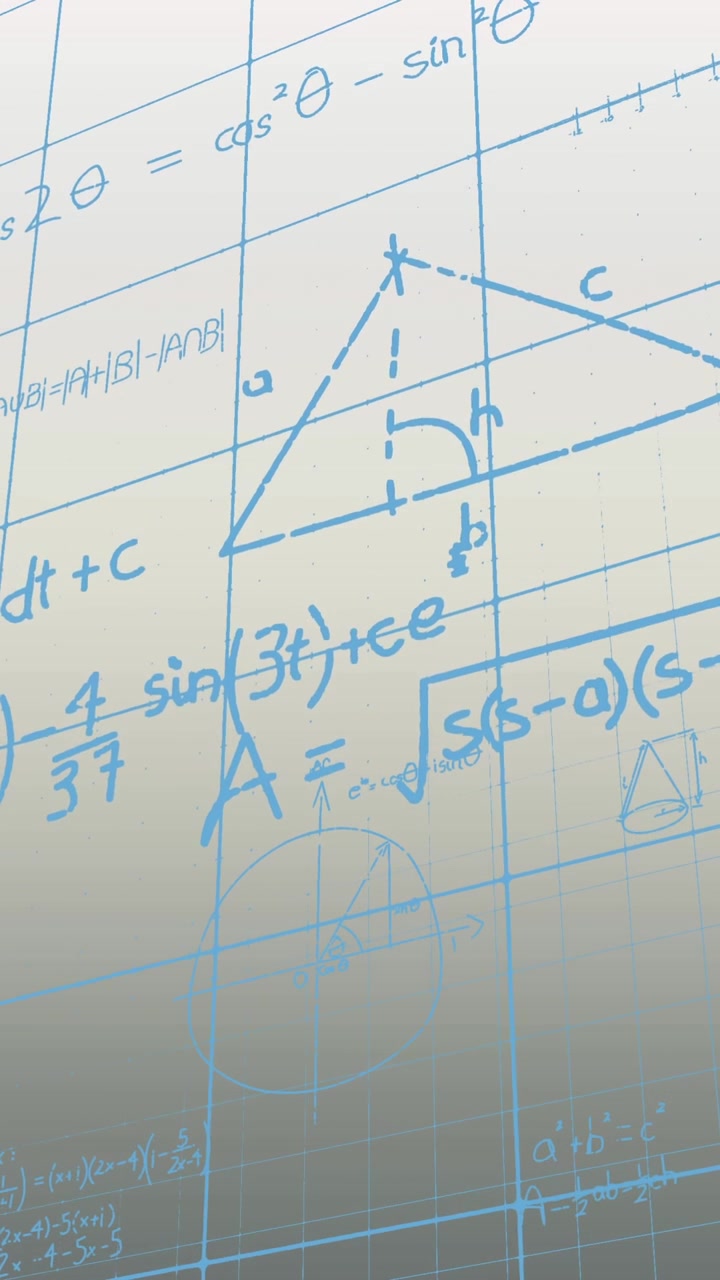 s2θ = cos²θ - sin²θ
AUB|=|A|+|B|-|A∩B|
a
c
h
b
dt + c
)-4/37 sin(3t)+ce
A = √s(s-a)(s-
e^iθ=cosθ+isinθ
h
sinθ
θ
0 cosθ
1
) = (x+i)(2x-4)(1-5/2x-4)
a²+b²=c²
2x-4)-5(x+i)
2x-4-5x-5